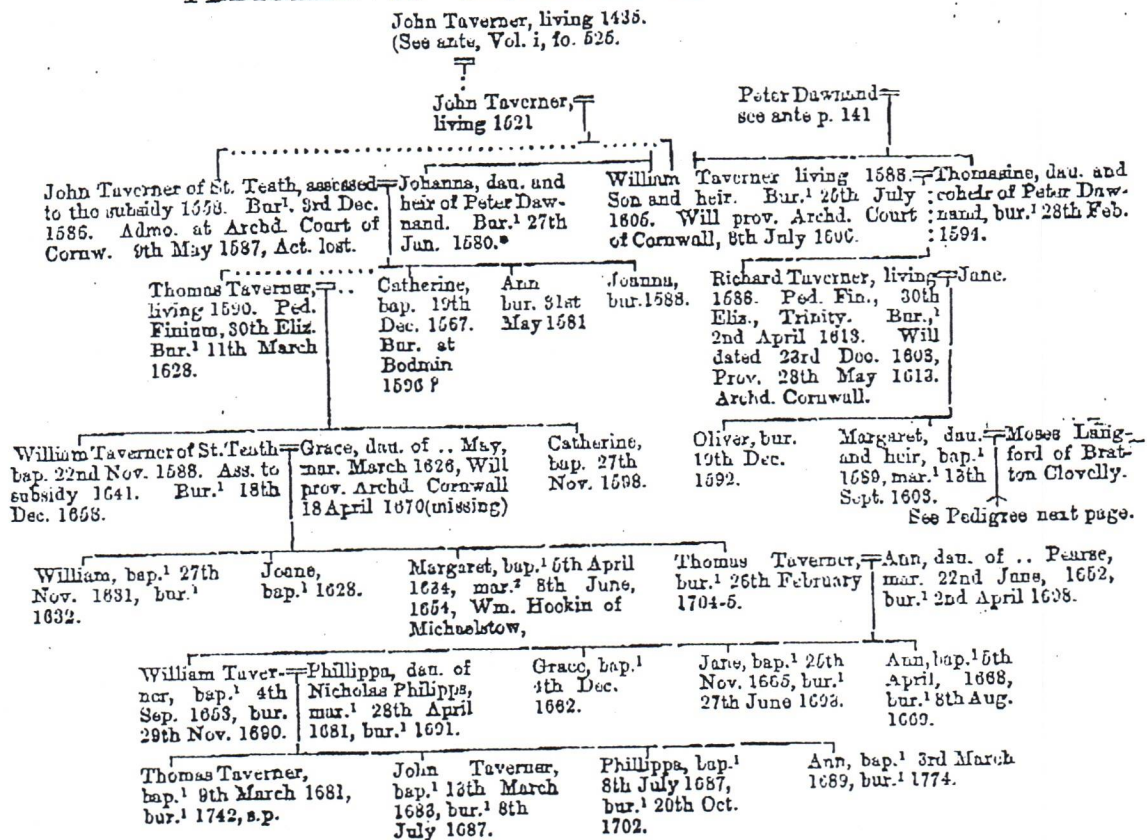 John Taverner, living 1435.
(See ante, Vol. i, fo. 525.
John Taverner,
living 1521
Peter Dawnand
see ante p. 141
John Taverner of St. Teath, assessed
to the subsidy 1558. Bur¹. 3rd Dec.
1586. Admo. at Archd. Court of
Cornw. 9th May 1587, Act. lost.
Johanna, dau. and
heir of Peter Daw-
nand. Bur.¹ 27th
Jan. 1580.*
William Taverner living 1588.
Son and heir. Bur.¹ 25th July
1606. Will prov. Archd. Court
of Cornwall, 8th July 1606.
Thomasine, dau. and
coheir of Peter Daw-
nand, bur.¹ 28th Feb.
1594.
Thomas Taverner, ..
living 1590. Ped.
Finium, 30th Eliz.
Bur.¹ 11th March
1628.
Catherine,
bap. 19th
Dec. 1567.
Bur. at
Bodmin
1596 ?
Ann
bur. 31st
May 1581
Joanna,
bur. 1588.
Richard Taverner, living
1588. Ped. Fin., 30th
Eliz., Trinity. Bur.,¹
2nd April 1613. Will
dated 23rd Dec. 1608,
Prov. 28th May 1613.
Archd. Cornwall.
Jane.
William Taverner of St. Teath
bap. 22nd Nov. 1588. Ass. to
subsidy 1641. Bur.¹ 18th
Dec. 1658.
Grace, dau. of .. May,
mar. March 1626, Will
prov. Archd. Cornwall
18 April 1670 (missing)
Catherine,
bap. 27th
Nov. 1598.
Oliver, bur.
19th Dec.
1592.
Margaret, dau.
and heir, bap.¹
1589, mar.¹ 13th
Sept. 1608.
Moses Lang-
ford of Brat-
ton Clovelly.
See Pedigree next page.
William, bap.¹ 27th
Nov. 1631, bur.¹
1632.
Joane,
bap.¹ 1628.
Margaret, bap.¹ 5th April
1634, mar.² 8th June,
1654, Wm. Hockin of
Michaelstow,
Thomas Taverner,
bur.¹ 26th February
1704-5.
Ann, dau. of .. Pearse,
mar. 22nd June, 1652,
bur.¹ 2nd April 1698.
William Taver-
ner, bap.¹ 4th
Sep. 1653, bur.
29th Nov. 1690.
Phillippa, dau. of
Nicholas Philipps,
mar.¹ 28th April
1681, bur.¹ 1691.
Grace, bap.¹
4th Dec.
1662.
Jane, bap.¹ 25th
Nov. 1665, bur.¹
27th June 1698.
Ann, bap.¹ 5th
April, 1668,
bur.¹ 8th Aug.
1669.
Thomas Taverner,
bap.¹ 9th March 1681,
bur.¹ 1742, s.p.
John Taverner,
bap.¹ 13th March
1683, bur.¹ 8th
July 1687.
Phillippa, bap.¹
8th July 1687,
bur.¹ 20th Oct.
1702.
Ann, bap.¹ 3rd March
1689, bur.¹ 1774.